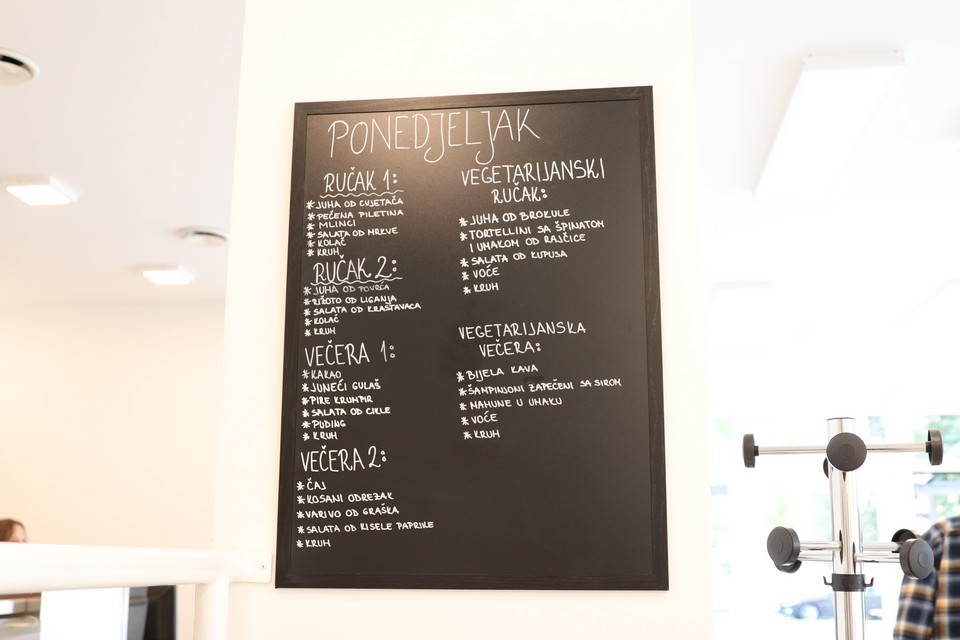 PONEDJELJAK
RUČAK 1:
* JUHA OD CVJETAČA
* PEČENA PILETINA
* MLINCI
* SALATA OD MRKVE
* KOLAČ
* KRUH
RUČAK 2:
* JUHA OD POVRĆA
* RIŽOTO OD LIGANJA
* SALATA OD KRAŠTAVACA
* KOLAČ
* KRUH
VEČERA 1:
* KAKAO
* JUNEĆI GULAŠ
* PIRE KRUMPIR
* SALATA OD CIKLE
* PUDING
* KRUH
VEČERA 2:
* ČAJ
* KOSANI ODREZAK
* VARIVO OD GRAŠKA
* SALATA OD KISELE PAPRIKE
* KRUH
VEGETARIJANSKI
RUČAK:
* JUHA OD BROKULE
* TORTELLINI SA ŠPINATOM
I UMAKOM OD RAJČICE
* SALATA OD KUPUSA
* VOĆE
* KRUH
VEGETARIJANSKA
VEČERA:
* BIJELA KAVA
* ŠAMPINJONI ZAPEČENI SA SIROM
* MAHUNE U UMAKU
* VOĆE
* KRUH